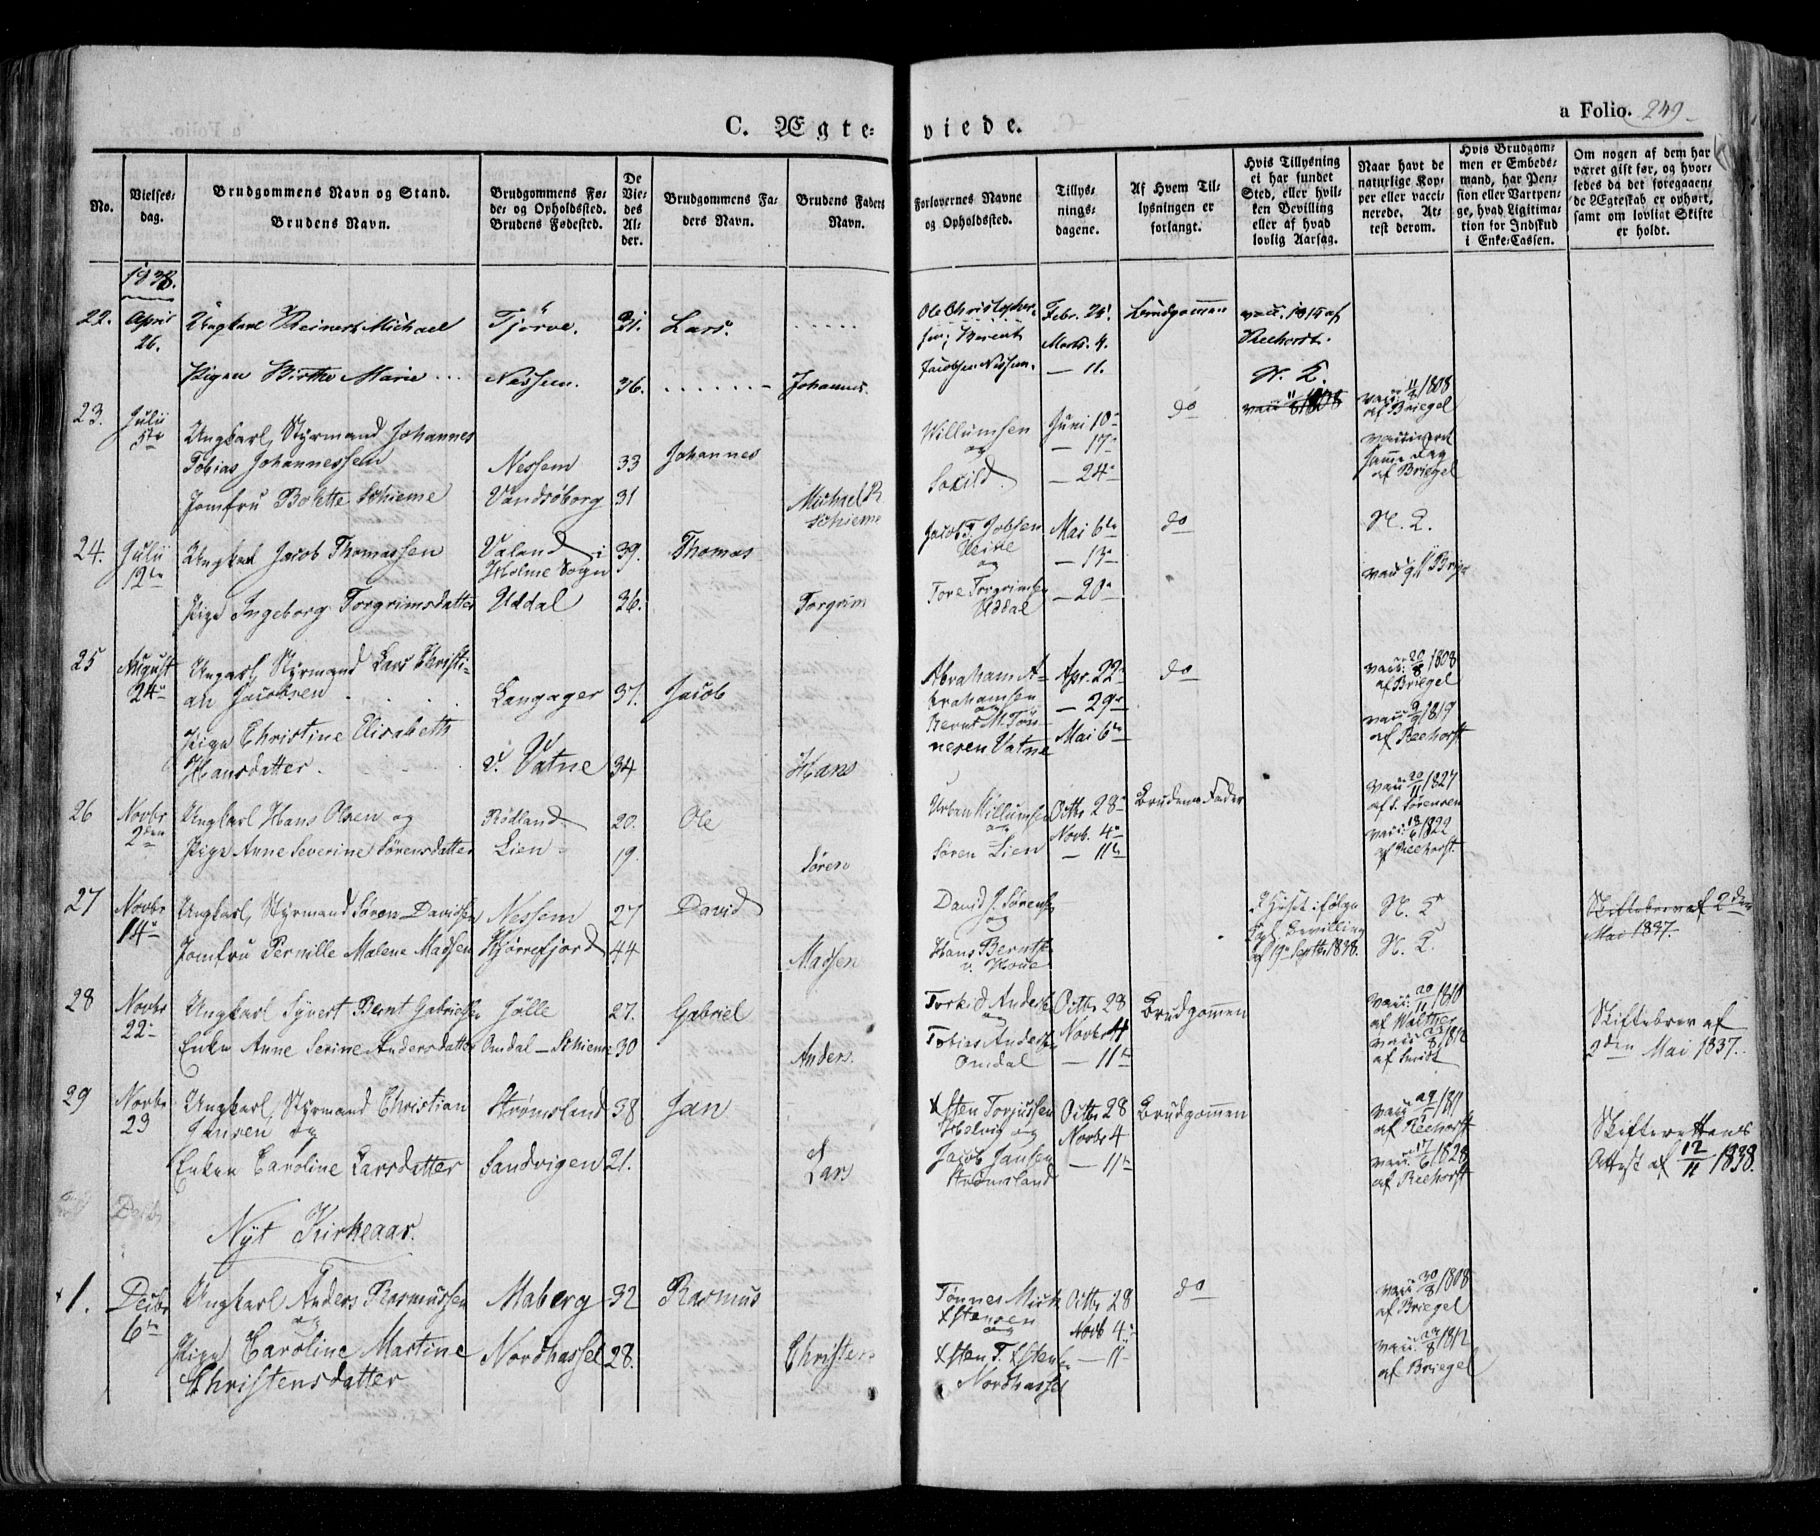 C. Ægte-
viede.
a Folio. 249
No.
Vielses-
dag.
Brudgommens Navn og Stand.
Brudens Navn.
Brudgommens Fø-
de- og Opholdssted.
Brudens Fødested.
De
Vie-
des
Al-
der.
Brudgommens Fa-
ders Navn.
Brudens Faders
Navn.
Forlovernes Navne
og Opholdssted.
Tillys-
nings-
dagene.
Af Hvem Til-
lysningen er
forlangt.
Hvis Tillysning
ei har fundet
Sted, eller hvil-
ken Bevilling
eller af hvad
lovlig Aarsag.
Naar havt de
naturlige Kop-
per eller vacci-
nerede. At-
test derom.
Hvis Brudgom-
men er Embeds-
mand, har Pen-
sion eller Vartpen-
ge, hvad Ligitima-
tion for Indskud
i Enke-Cassen.
Om nogen af dem har
været gift før, og hvor-
ledes da det foregaaen-
de Ægteskab er ophørt,
samt om lovligt Skifte
er holdt.
1838.
22. April 26. Ungkarl Reinert Michael Tjörve. 31. Lars. Ole Christopher- Febr. 25. Brudgommen vacc. 1815 af
sen, Berent Marts. 4. Reehorst.
Pigen Birthe Marie Nessem. 36. Johannes. Jacobsen Nessem. — 11. N. K.
23. Julii 5te Ungkarl, Styrmand Johannes
Tobias Johannessen Nessem 33 Johannes Willumsen og Juni 10 — 17 do vacc. 11/8 1808 af Briegel
Jomfru Bolette Schieme Vandsöborg 31 Michael R. Schieme — 24 vaccineret samme Dag af Briegel
24. Julii 12te Ungkarl Jacob Thomassen Valand i Holme Sogn 39. Thomas Jacob T. Jobsen og Mai 6te — 13 do N. K.
Pige Ingeborg Torgrimsdatter Uddal 36. Torgrim Tore Torgrimsen Uddal — 20
25 August 24 Ungkarl, Styrmand Lars Christi-
an Jacobsen Langager 37. Jacob Abraham A-
brahamsen og Apr. 22 — 29 do vacc: 20/8 1808 af Briegel
Pige Christine Elisabeth
Hansdatter v. Vatne 34 Hans Bernt M. Tön-
nesen Vatne Mai 6te vacc: 9/9 1819 af Reehorst
26 Novbr 2den Ungkarl Hans Olsen og Rødland 20. Ole Urban Willumsen og Octbr 28 Novb. 4 Brudens Fader vacc. 20/11 1827 af S. Sörensen
Pige Anne Severine Sørensdatter Lien 19. Sören Sören Lien — 11te vacc: 18/6 1822 af Reehorst.
27 Novbr 14 Ungkarl, Styrmand Søren Davidsen Nessem 27 David David J. Sörensen og I Huset ifølge N. K. Skiftebrev af 2den
Mai 1837.
Jomfru Pernille Malene Madsen Kjörrefjord 44 Madsen Hans Berntsen v. Houe Kgl. Bevilling af 19 Septbr 1838. N. K.
28 Novbr 22 Ungkarl Syvert Bernt Gabrielsen Jölle 27. Gabriel Torkild Andersen og Octbr 28 Novbr 4 Brudgommen vacc: 20/11 1810 af Walther Skiftebrev af
2den Mai 1837.
Enken Anne Serine Andersdatter Omdal — Schieme 30 Anders. Tobias Andersen Omdal — 11te
29 Novbr 23 Ungkarl, Styrmand Christian
Jansen og Strömsland 38 Jan Osten Torjussen og Octbr 28 Novbr 4 Brudgommen vacc. 29/5 1811 af Reehorst Skifterettens
Attest af 12/11 1838.
Enken Caroline Larsdatter Sandvigen 21. Lars Jacob Jansen Strömsland — 11te vacc. 17/6 1828 af Reehorst
Nyt Kirkeaar.
1. Decbr 6te Ungkarl Anders Rasmussen og Maberg 32 Rasmus Tönnes Mich Ostensen og Octbr 28 Novb 4 do vacc 30/8 1808 af Briegel
Pige Caroline Martine
Christensdatter Nordhassel 28. Christen Osten T. Ostensen Nordhassel — 11 vacc. 24/8 1812 af Briegel